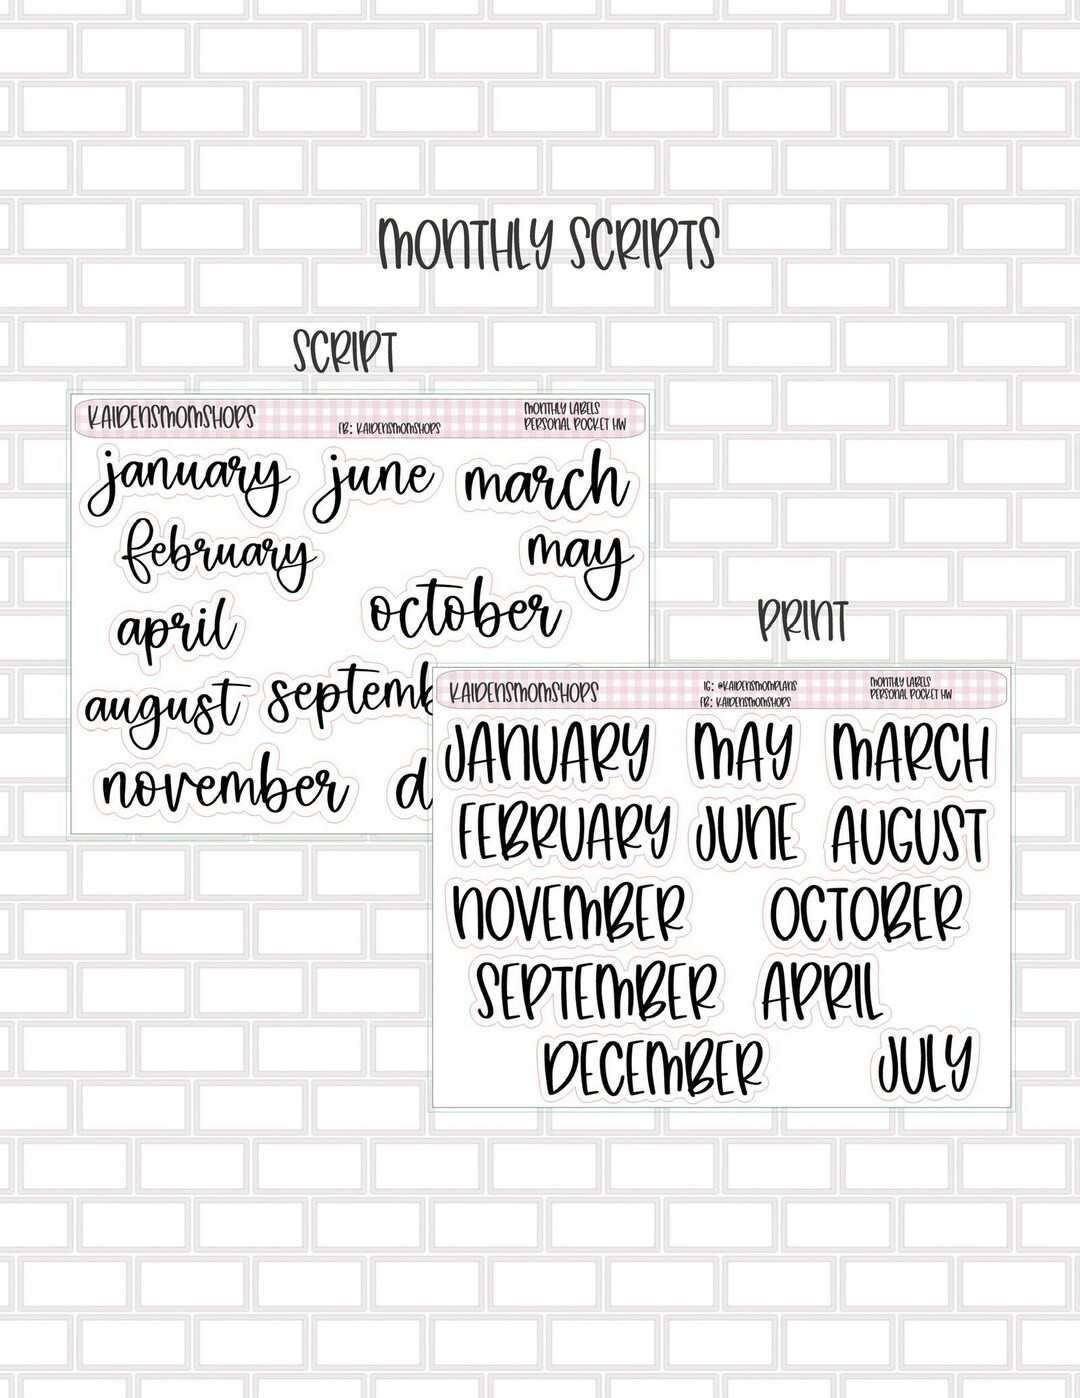 MONTHLY SCRIPTS
SCRIPT
KAIDENSMOMSHOPS
FB: KAIDENSMOMSHOPS
MONTHLY LABELS
PERSONAL POCKET HW
january june march
february may
april october
august septemb
november d
PRINT
KAIDENSMOMSHOPS
IG: @KAIDENSMOMPLANS
FB: KAIDENSMOMSHOPS
MONTHLY LABELS
PERSONAL POCKET HW
JANUARY MAY MARCH
FEBRUARY JUNE AUGUST
NOVEMBER OCTOBER
SEPTEMBER APRIL
DECEMBER JULY